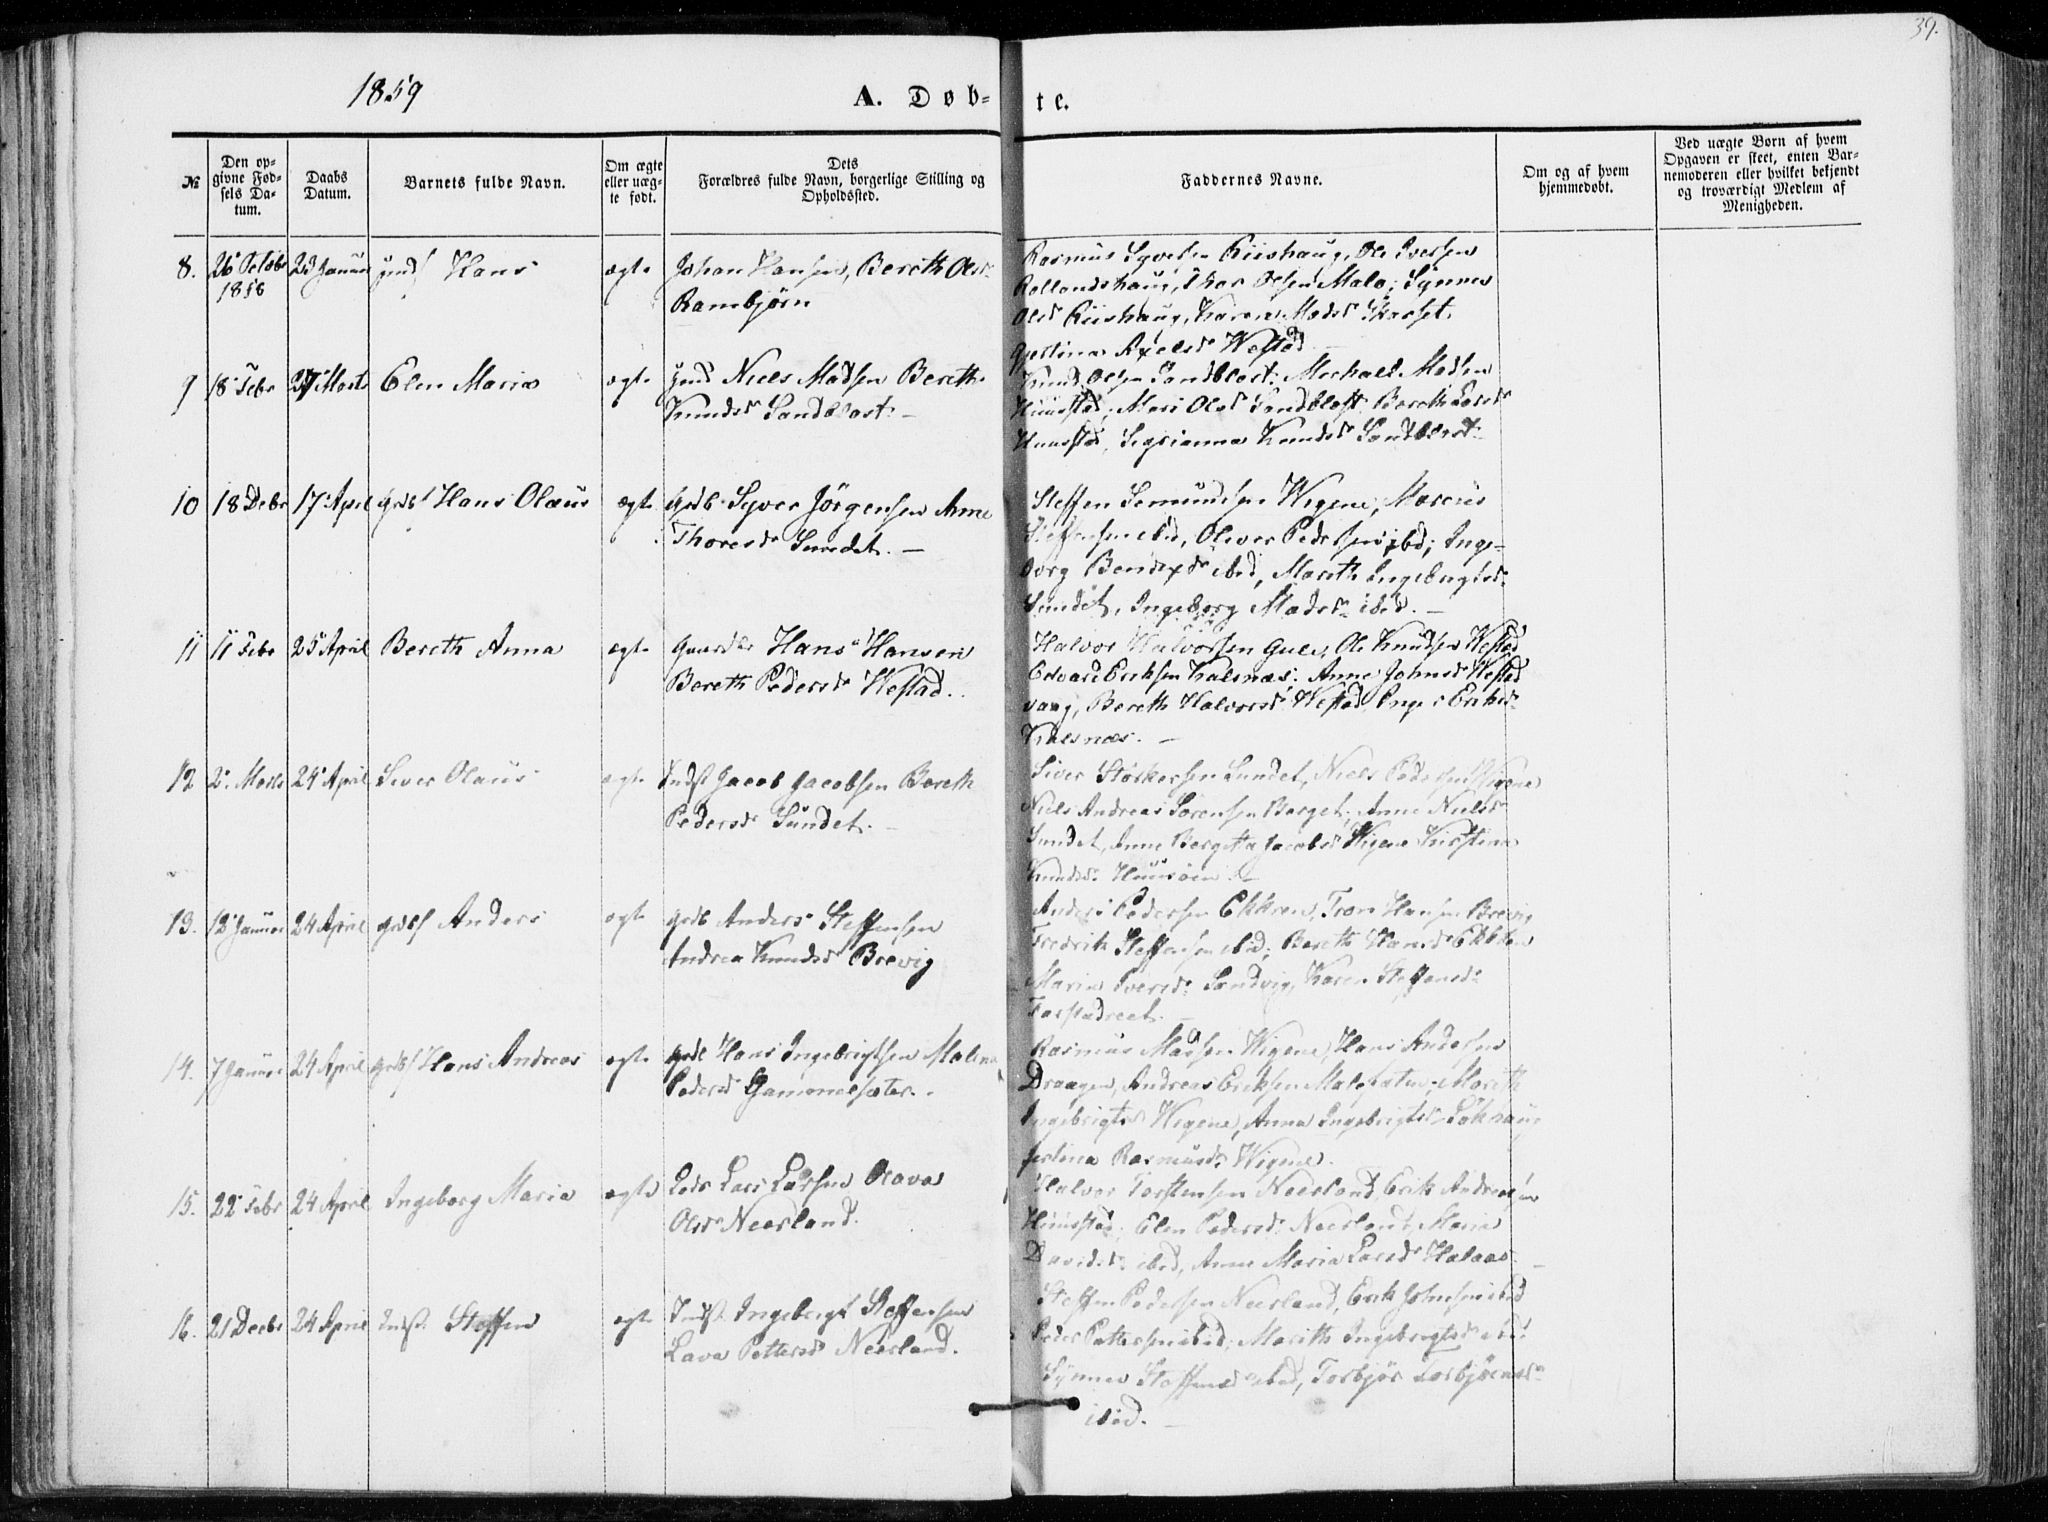 39.
1859
A. Døb- te.
№
Den op-
givne Fød-
sels Da-
tum.
Daabs
Datum.
Barnets fulde Navn.
Om ægte
eller uæg-
te født.
Dets
Forældres fulde Navn, borgerlige Stilling og
Opholdssted.
Faddernes Navne.
Om og af hvem
hjemmedøbt.
Ved uægte Børn af hvem
Opgaven er skeet, enten Bar-
nemoderen eller hvilket bekjendt
og troværdigt Medlem af
Menigheden.
8. 26 Octobr 23 Januar Hans ægte Johan Hansen, Bereth Olsd.
1858
Rambjørn
Rasmus Syversen Riishaug, Ole Iversen
Rollandshaug, Thor Olsen Malo; Synnev
Olsd Riishaug, Karen Madsd Skarset
Axelsd Westad
9 18 Febr 27 Marts Elen Maria ægte Niels Madsen Bereth
Knudsd Sandblost. –
Knud Olsen Sandblost, Michael Madsen
Huustad, Mari Olsd Sandblost, Bereth Larsd
Huustad, Knudsd Sandblost
10 18 Debr 17 April Hans Olaus ægte Syver Jörgensen Anne
Thoresd Sundet. –
Steffen Semundsen Wigene, Marcus
Steffensen ibid, Oliver Pedersen ibd; Inge-
borg Bendixd ibid, Marith Ingebrigtsd
Sundet, Ingeborg Madsd ibid. –
11 11 Febr 25 April Bereth Anna ægte Hans Hansen
Bereth Pedersd Westad.
Halvor Halvorsen Gule, Ole Knudsen Westad
Edvard Eriksen Kalsnæs; Anne Johnsd Westad
vaag, Bereth Halvorsd Westad, Inger Eriksd
Kalsnæs. –
12 2. Marts 24 April Siver Olaus ægte Indst Jacob Jacobsen Bereth
Pedersd Sundet. –
Siver Størkersen Sundet, Niels Pedersen Wigene
Niels Andreas Sørensen Berget; Anne Nielsd
Sundet, Anne Bergitta Jacobsd Wigene Kirstina
Knudsd Huusøen
13. 12 Januar 24 April Anders ægte Anders Steffensen
Andrea Knudsd Brevig
Anders Pedersen Ekkren, Tron Hansen Brevig
Fredrik Steffensen ibid; Bereth Hansd Ekkren
Marin Iversd Sandvig, Karen Steffensd
Farstadreet. –
14. 7 Januar 24 April Hans Andreas ægte Hans Ingebrigtsen Malena
Pedersd Gammelsæter.
Rasmus Madsen Wigene, Hans Andersen
Draagen, Andreas Eriksen Malefæten; Marith
Ingebrigtsd Wigene, Anna Ingebrigtsd Løkhaug
Rasmusd Wigene.
15. 22 Febr 24 April Ingeborg Maria ægte Lars Larsen Olava
Olsd Neerland.
Halvor Torstensen Neerland, Erik Andreasen
Huustad; Elen Pedersd Neerland, Maria
Davidsd ibid, Anne Maria Larsd Halaas
16. 21 Decbr 24 April Indst. Steffen ægte Indst. Ingebrigt Steffensen
Lava Pettersd Neerland.
Steffen Pedersen Neerland, Erik Johnsen ibid
Peder Pettersen ibid; Marith Ingebrigtsd ibid
Synnev Steffensd ibid, Torbjør Torbjørnsd
ibid. –